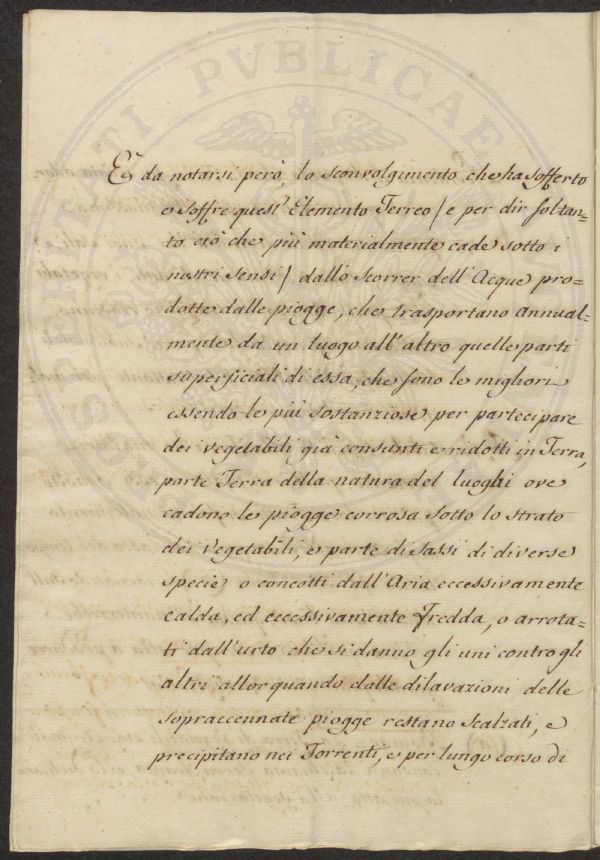 È da notarsi però, lo sconvolgimento che ha sofferto
e soffre quest' Elemento Terreo / e per dir soltan=
to ciò che più materialmente cade sotto i
nostri sensi / dallo scorrer dell'Acque pro=
dotte dalle piogge, che trasportano annual=
mente da un luogo all'altro quelle parti
superficiali di essa, che sono le migliori
essendo le più sostanziose per partecipare
dei vegetabili già consunti e ridotti in Terra,
parte Terra della natura del luoghi ove
cadono le piogge corrosa sotto lo strato
dei Vegetabili, e parte di sassi di diverse
specie o concotti dall'Aria eccessivamente
calda, ed eccessivamente Fredda, o arrota=
ti dall'urto che si danno gli uni contro gli
altri allor quando dalle dilavazioni delle
sopraccennate piogge restano scalzati, e
precipitano nei Torrenti, e per lungo corso di
PVBLICAE